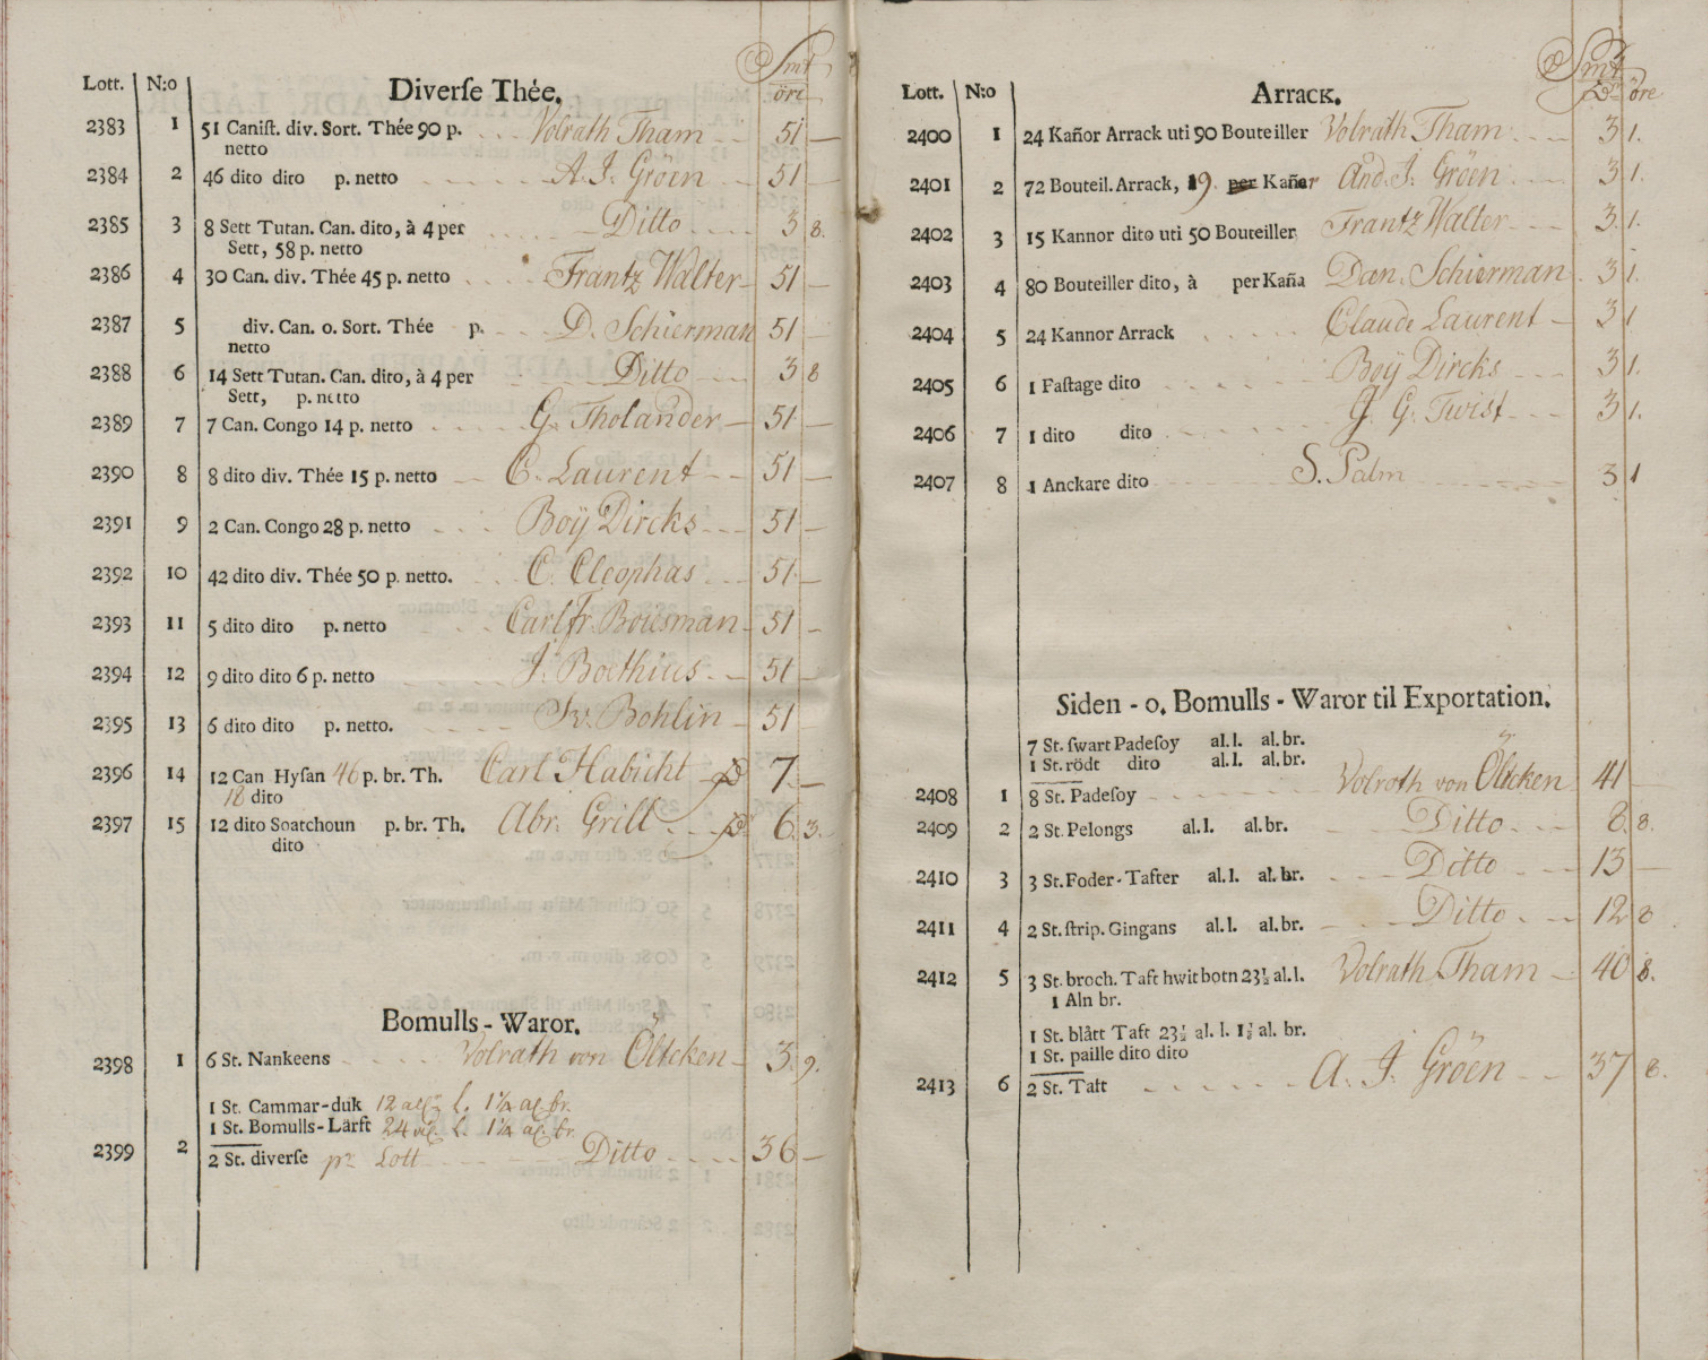 Smt
öre
Lott. N:o Diverſe Thée.
2383 1 51 Caniſt. div. Sort. Thée 90 p. Volrath Tham 51 —
netto
2384 2 46 dito dito p. netto A. J. Gröen 51 —
2385 3 8 Sett Tutan. Can. dito, à 4 per Ditto 3 8.
Sett, 58 p. netto
2386 4 30 Can. div. Thée 45 p. netto Frantz Walter 51 —
2387 5 div. Can. o. Sort. Thée p. D. Schierman 51 —
netto
2388 6 14 Sett Tutan. Can. dito, à 4 per Ditto 3 8
Sett, p. netto
2389 7 7 Can. Congo 14 p. netto G. Tholander 51 —
2390 8 8 dito div. Thée 15 p. netto C. Laurent 51 —
2391 9 2 Can. Congo 28 p. netto Boÿ Dircks 51 —
2392 10 42 dito div. Thée 50 p. netto. C. Cleophas 51 —
2393 11 5 dito dito p. netto Carl Fr. Bousman 51 —
2394 12 9 dito dito 6 p. netto J. Boethius 51 —
2395 13 6 dito dito p. netto. Sv. Bohlin 51 —
2396 14 12 Can Hyſan 46 p. br. Th. Carl Habicht 7. —
18 dito
2397 15 12 dito Soatchoun p. br. Th. Abr. Grill 6. 3.
dito
Bomulls - Waror.
2398 1 6 St. Nankeens Volrath von Öltcken 3. 9.
1 St. Cammar-duk 12 aln l. 1¼ al. br.
1 St. Bomulls-Lärft 24 al. l. 1¼ al. br.
2399 2 2 St. diverſe pr Lott Ditto 36 —
Smt
Dr öre
Lott. N:o Arrack.
2400 1 24 Kañor Arrack uti 90 Bouteiller Volrath Tham 3 1.
2401 2 72 Bouteil. Arrack, 19. per Kañor And. J. Gröen 3 1.
2402 3 15 Kannor dito uti 50 Bouteiller Frantz Walter 3. 1.
2403 4 80 Bouteiller dito, à per Kaña Dan. Schierman 3 1.
2404 5 24 Kannor Arrack Claude Laurent 3 1
2405 6 1 Faſtage dito Boÿ Dircks 3 1.
2406 7 1 dito dito J. G. Twist 3 1.
2407 8 1 Anckare dito S. Palm 3 1
Siden - o. Bomulls - Waror til Exportation.
7 St. ſwart Padeſoy al. l. al. br.
1 St. rödt dito al. l. al. br.
2408 1 8 St. Padeſoy Volrath von Öltcken 41 —
2409 2 2 St. Pelongs al. l. al. br. Ditto 8. 8.
2410 3 3 St. Foder-Tafter al. l. al. br. Ditto 13 —
2411 4 2 St. ſtrip. Gingans al. l. al. br. Ditto 12 8
2412 5 3 St. broch. Taft hwit botn 23½ al. l. Volrath Tham 40 8.
1 Aln br.
1 St. blått Taft 23½ al. l. 1½ al. br.
1 St. paille dito dito
2413 6 2 St. Taft A. J. Gröen 37 8.